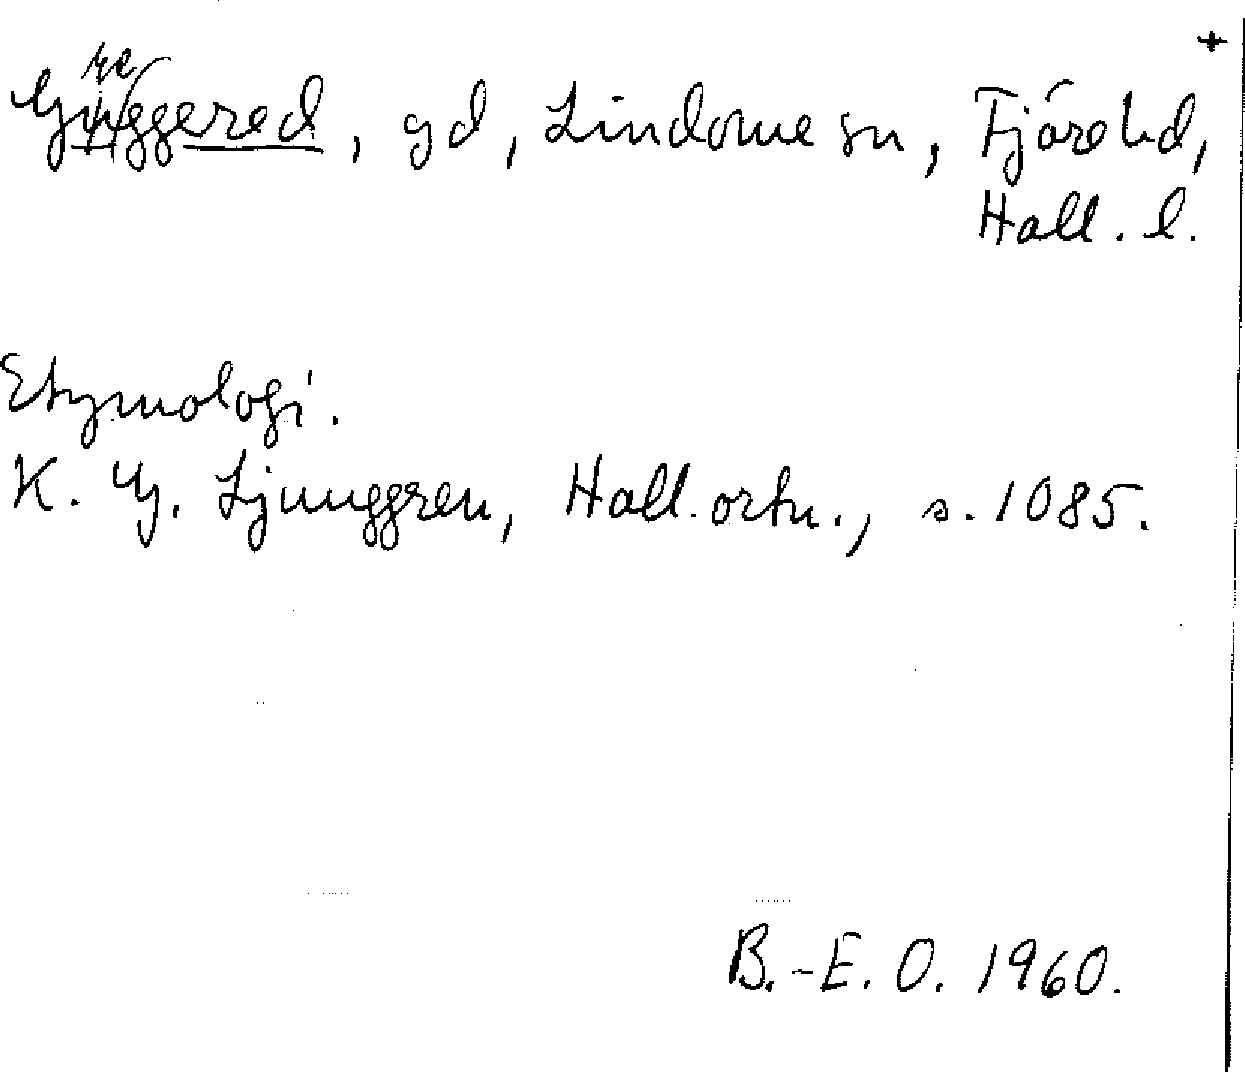 +
Greggered, gd, Lindome sn, Fjäre hd,
Hall. l.
Etymologi.
K. G. Ljunggren, Hall. ortn., s. 1085.
B.-E. O. 1960.